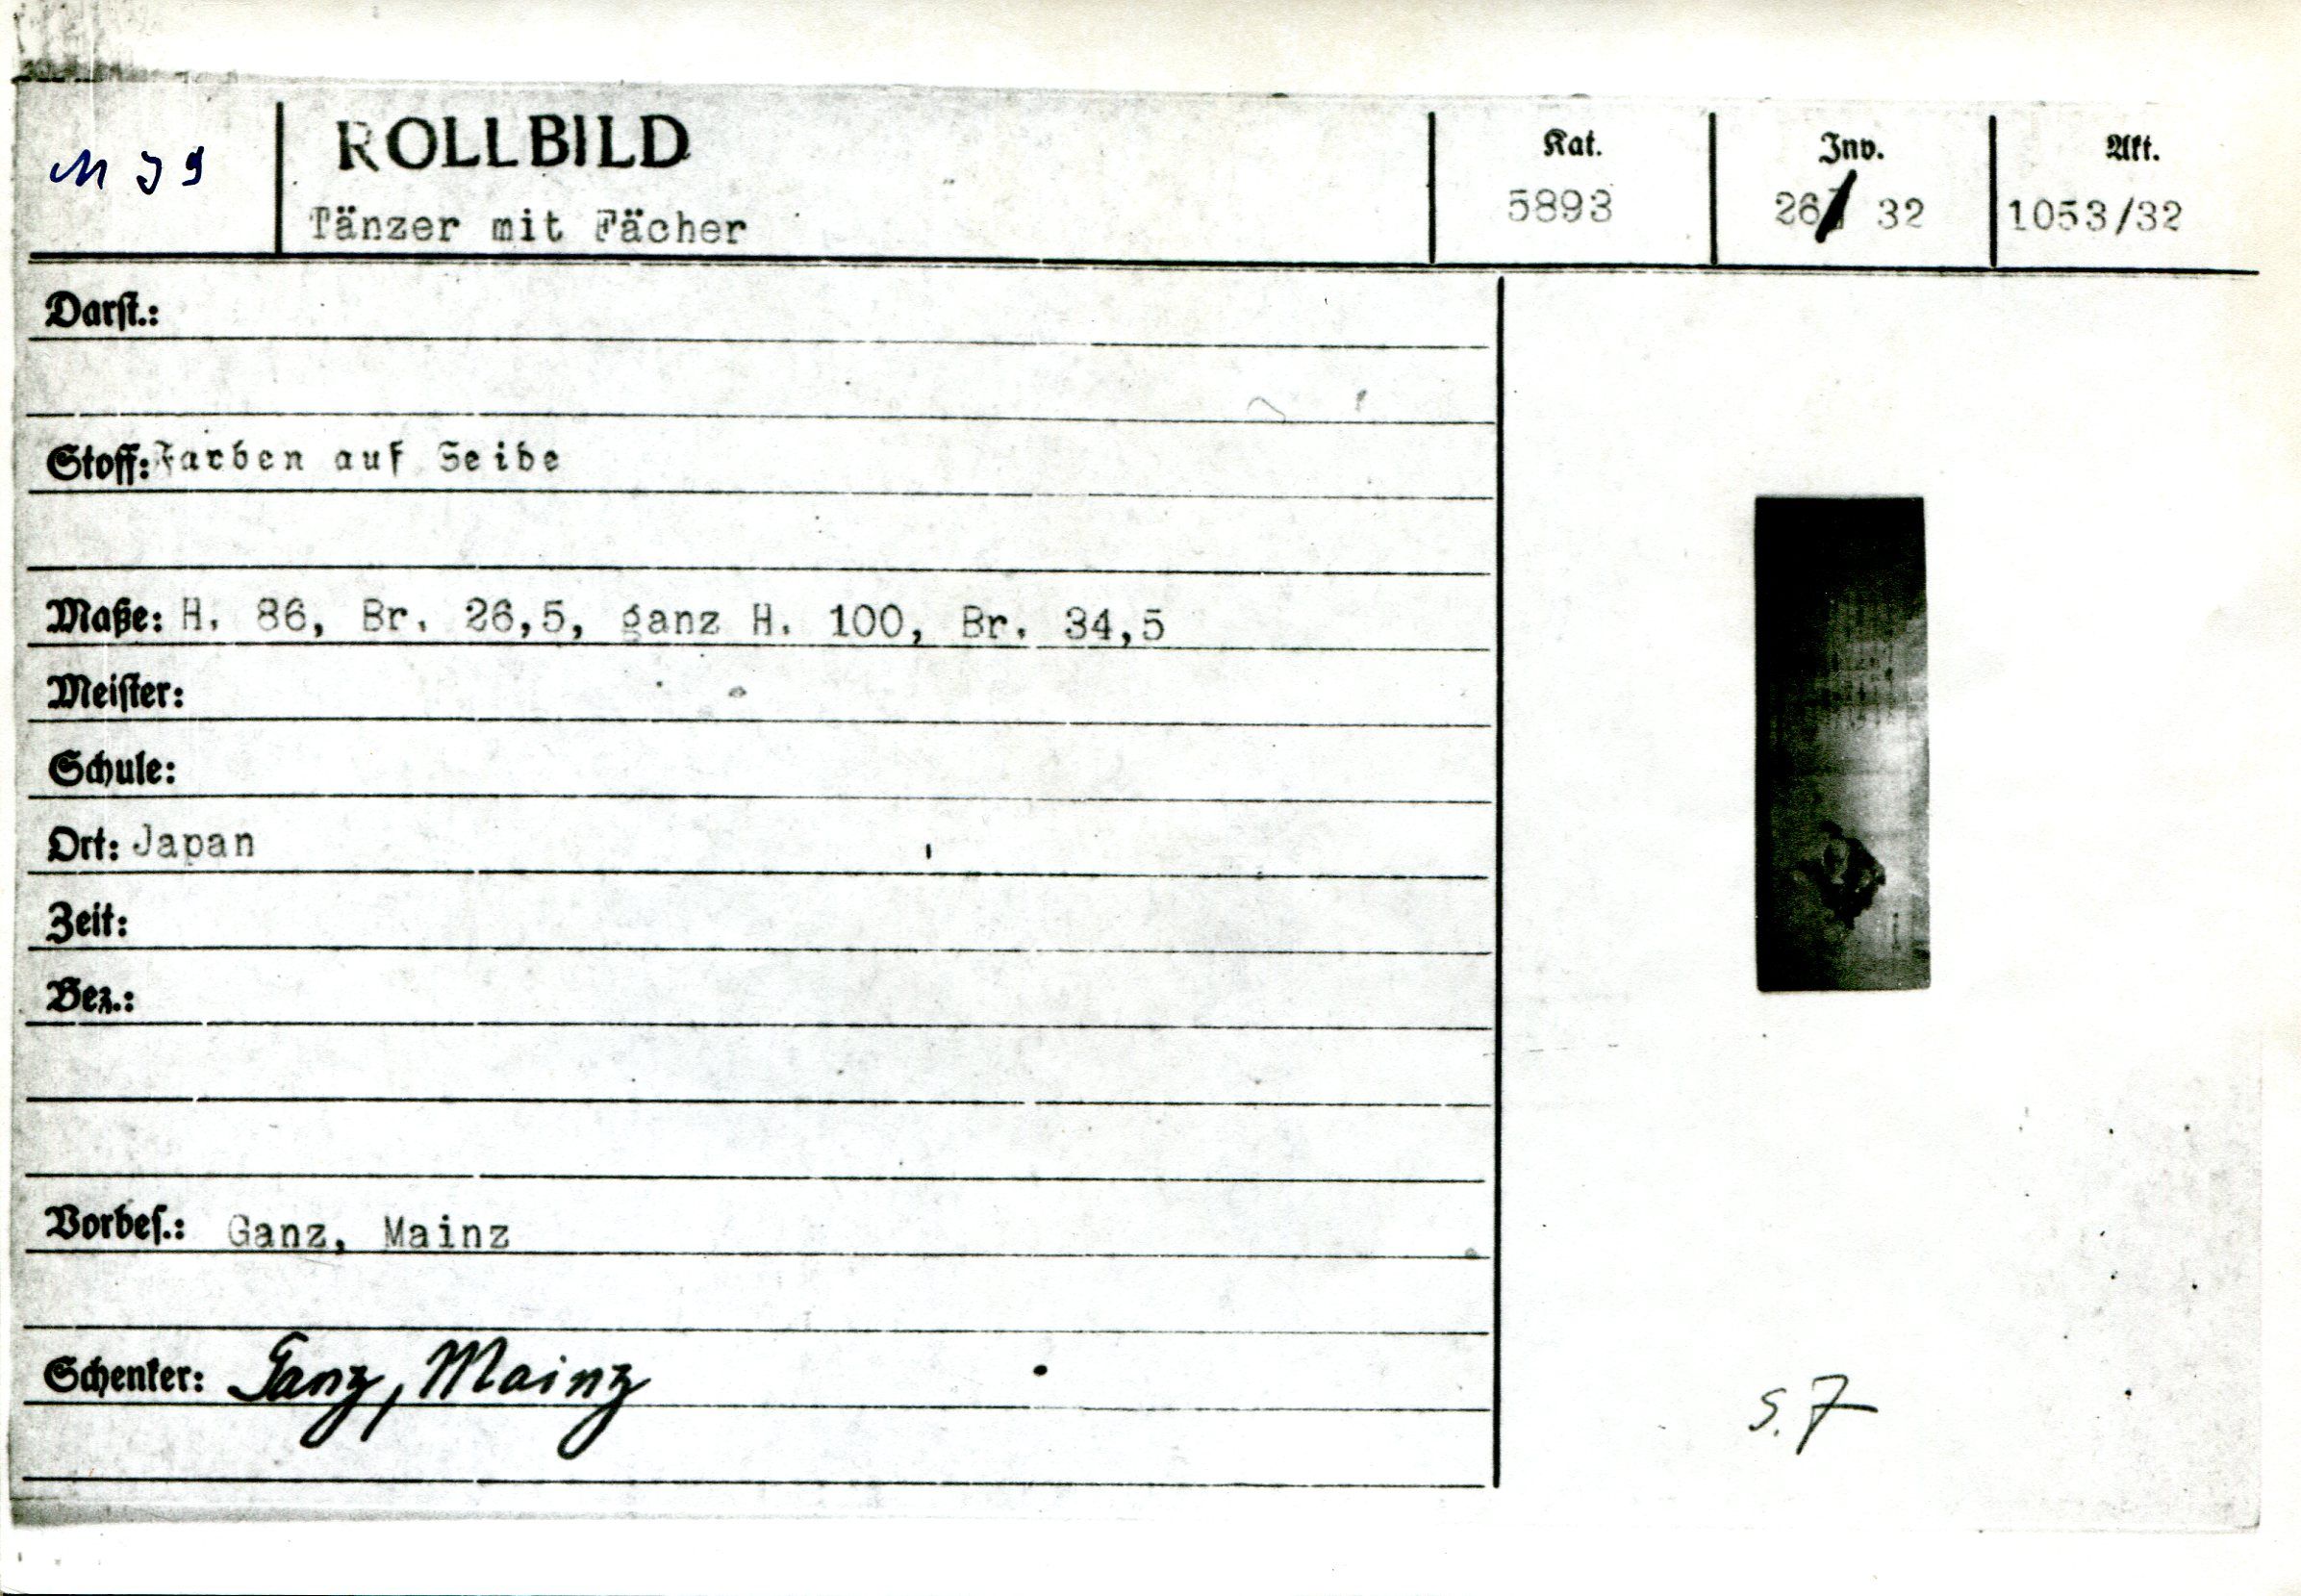 M J 9
ROLLBILD
Tänzer mit Fächer
Kat.
5893
Inv.
26/ 32
Akt.
1053/32
Darst.:
Stoff: Farben auf Seide
Maße: H. 86, Br. 26,5, ganz H. 100, Br. 34,5
Meister:
Schule:
Ort: Japan
Zeit:
Bez.:
Vorbes.: Ganz, Mainz
Schenker: Ganz, Mainz
S. 7